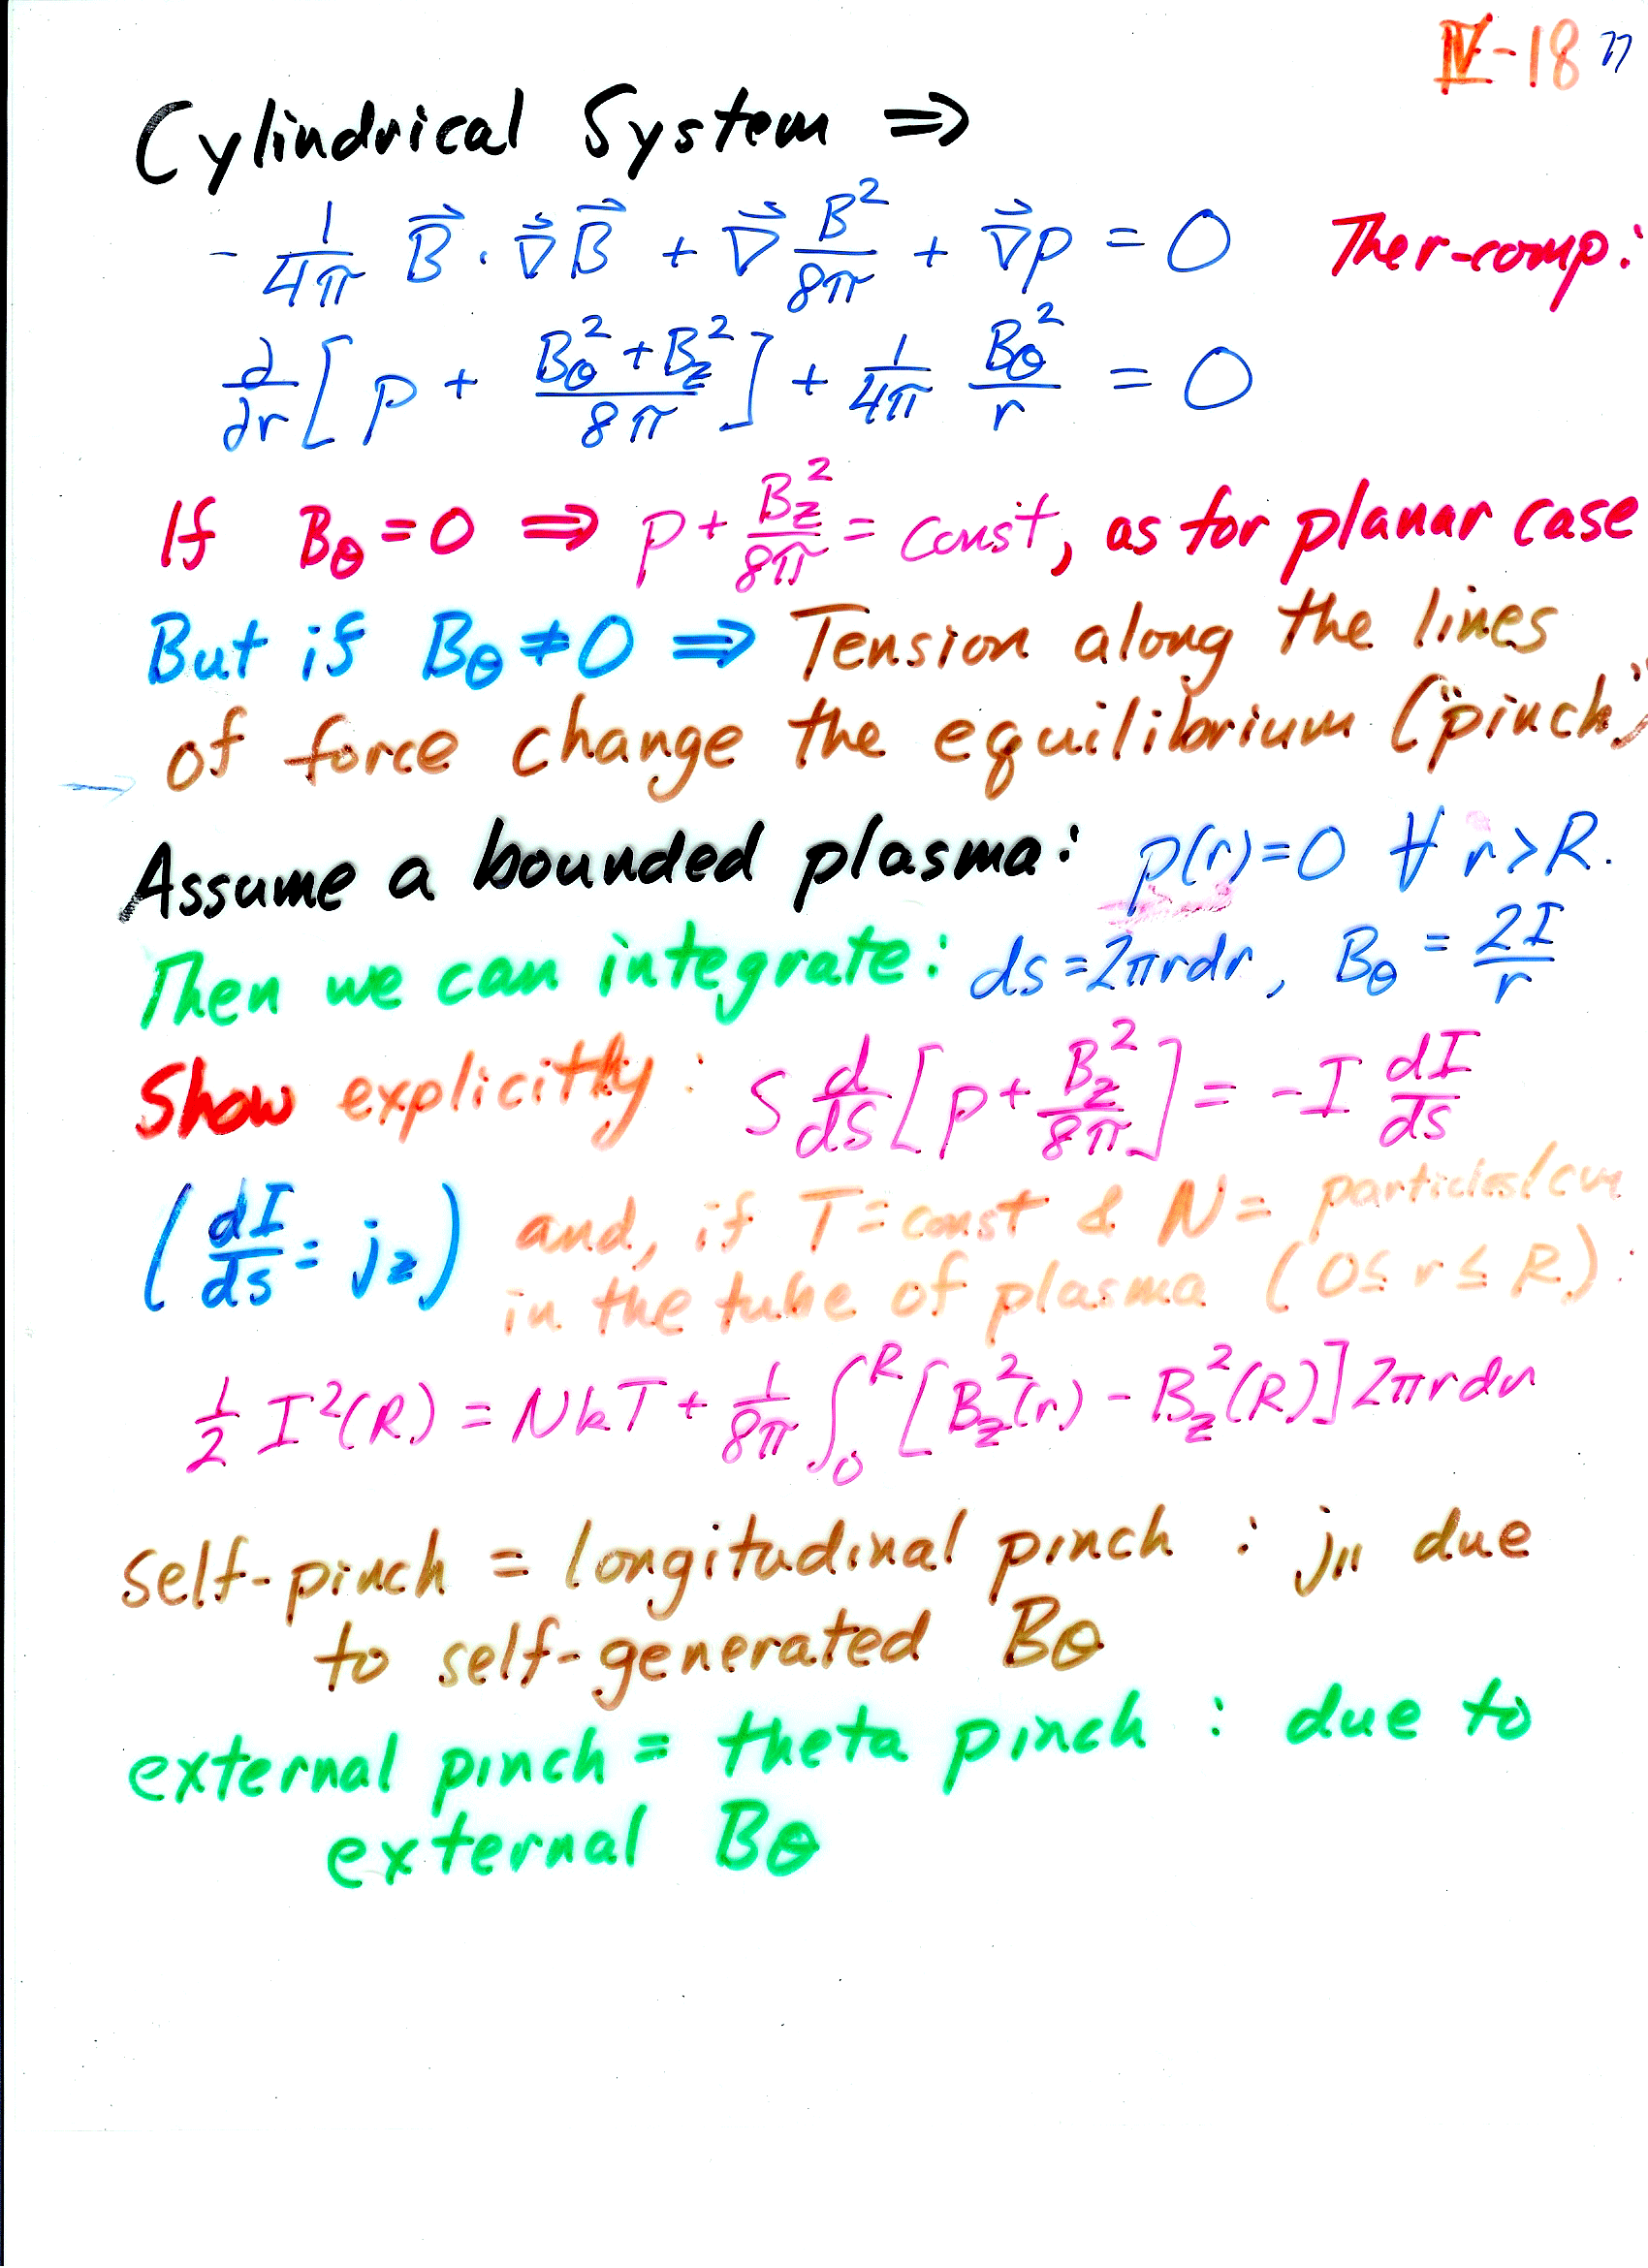 IV-18 77
Cylindrical System ⇒
- 1/4π B⃗ · ∇⃗ B⃗ + ∇⃗ B²/8π + ∇⃗p = 0 The r-comp:
∂/∂r [ p + (Bθ² + Bz²)/8π ] + 1/4π Bθ²/r = 0
If Bθ = 0 ⇒ p + Bz²/8π = const, as for planar case
But if Bθ ≠ 0 ⇒ Tension along the lines
of force change the equilibrium ("pinch")
→
Assume a bounded plasma: p(r) = 0 ∀ r > R.
Then we can integrate: ds = 2πrdr, Bθ = 2I/r
Show explicitly: S d/ds [ p + Bz²/8π ] = -I dI/ds
( dI/ds = jz ) and, if T = const & N = particles/cm
in the tube of plasma (0 ≤ r ≤ R):
1/2 I²(R) = NkT + 1/8π ∫₀ᴿ [ Bz²(r) - Bz²(R) ] 2πrdr
self-pinch = longitudinal pinch : j|| due
to self-generated Bθ
external pinch = theta pinch : due to
external Bθ